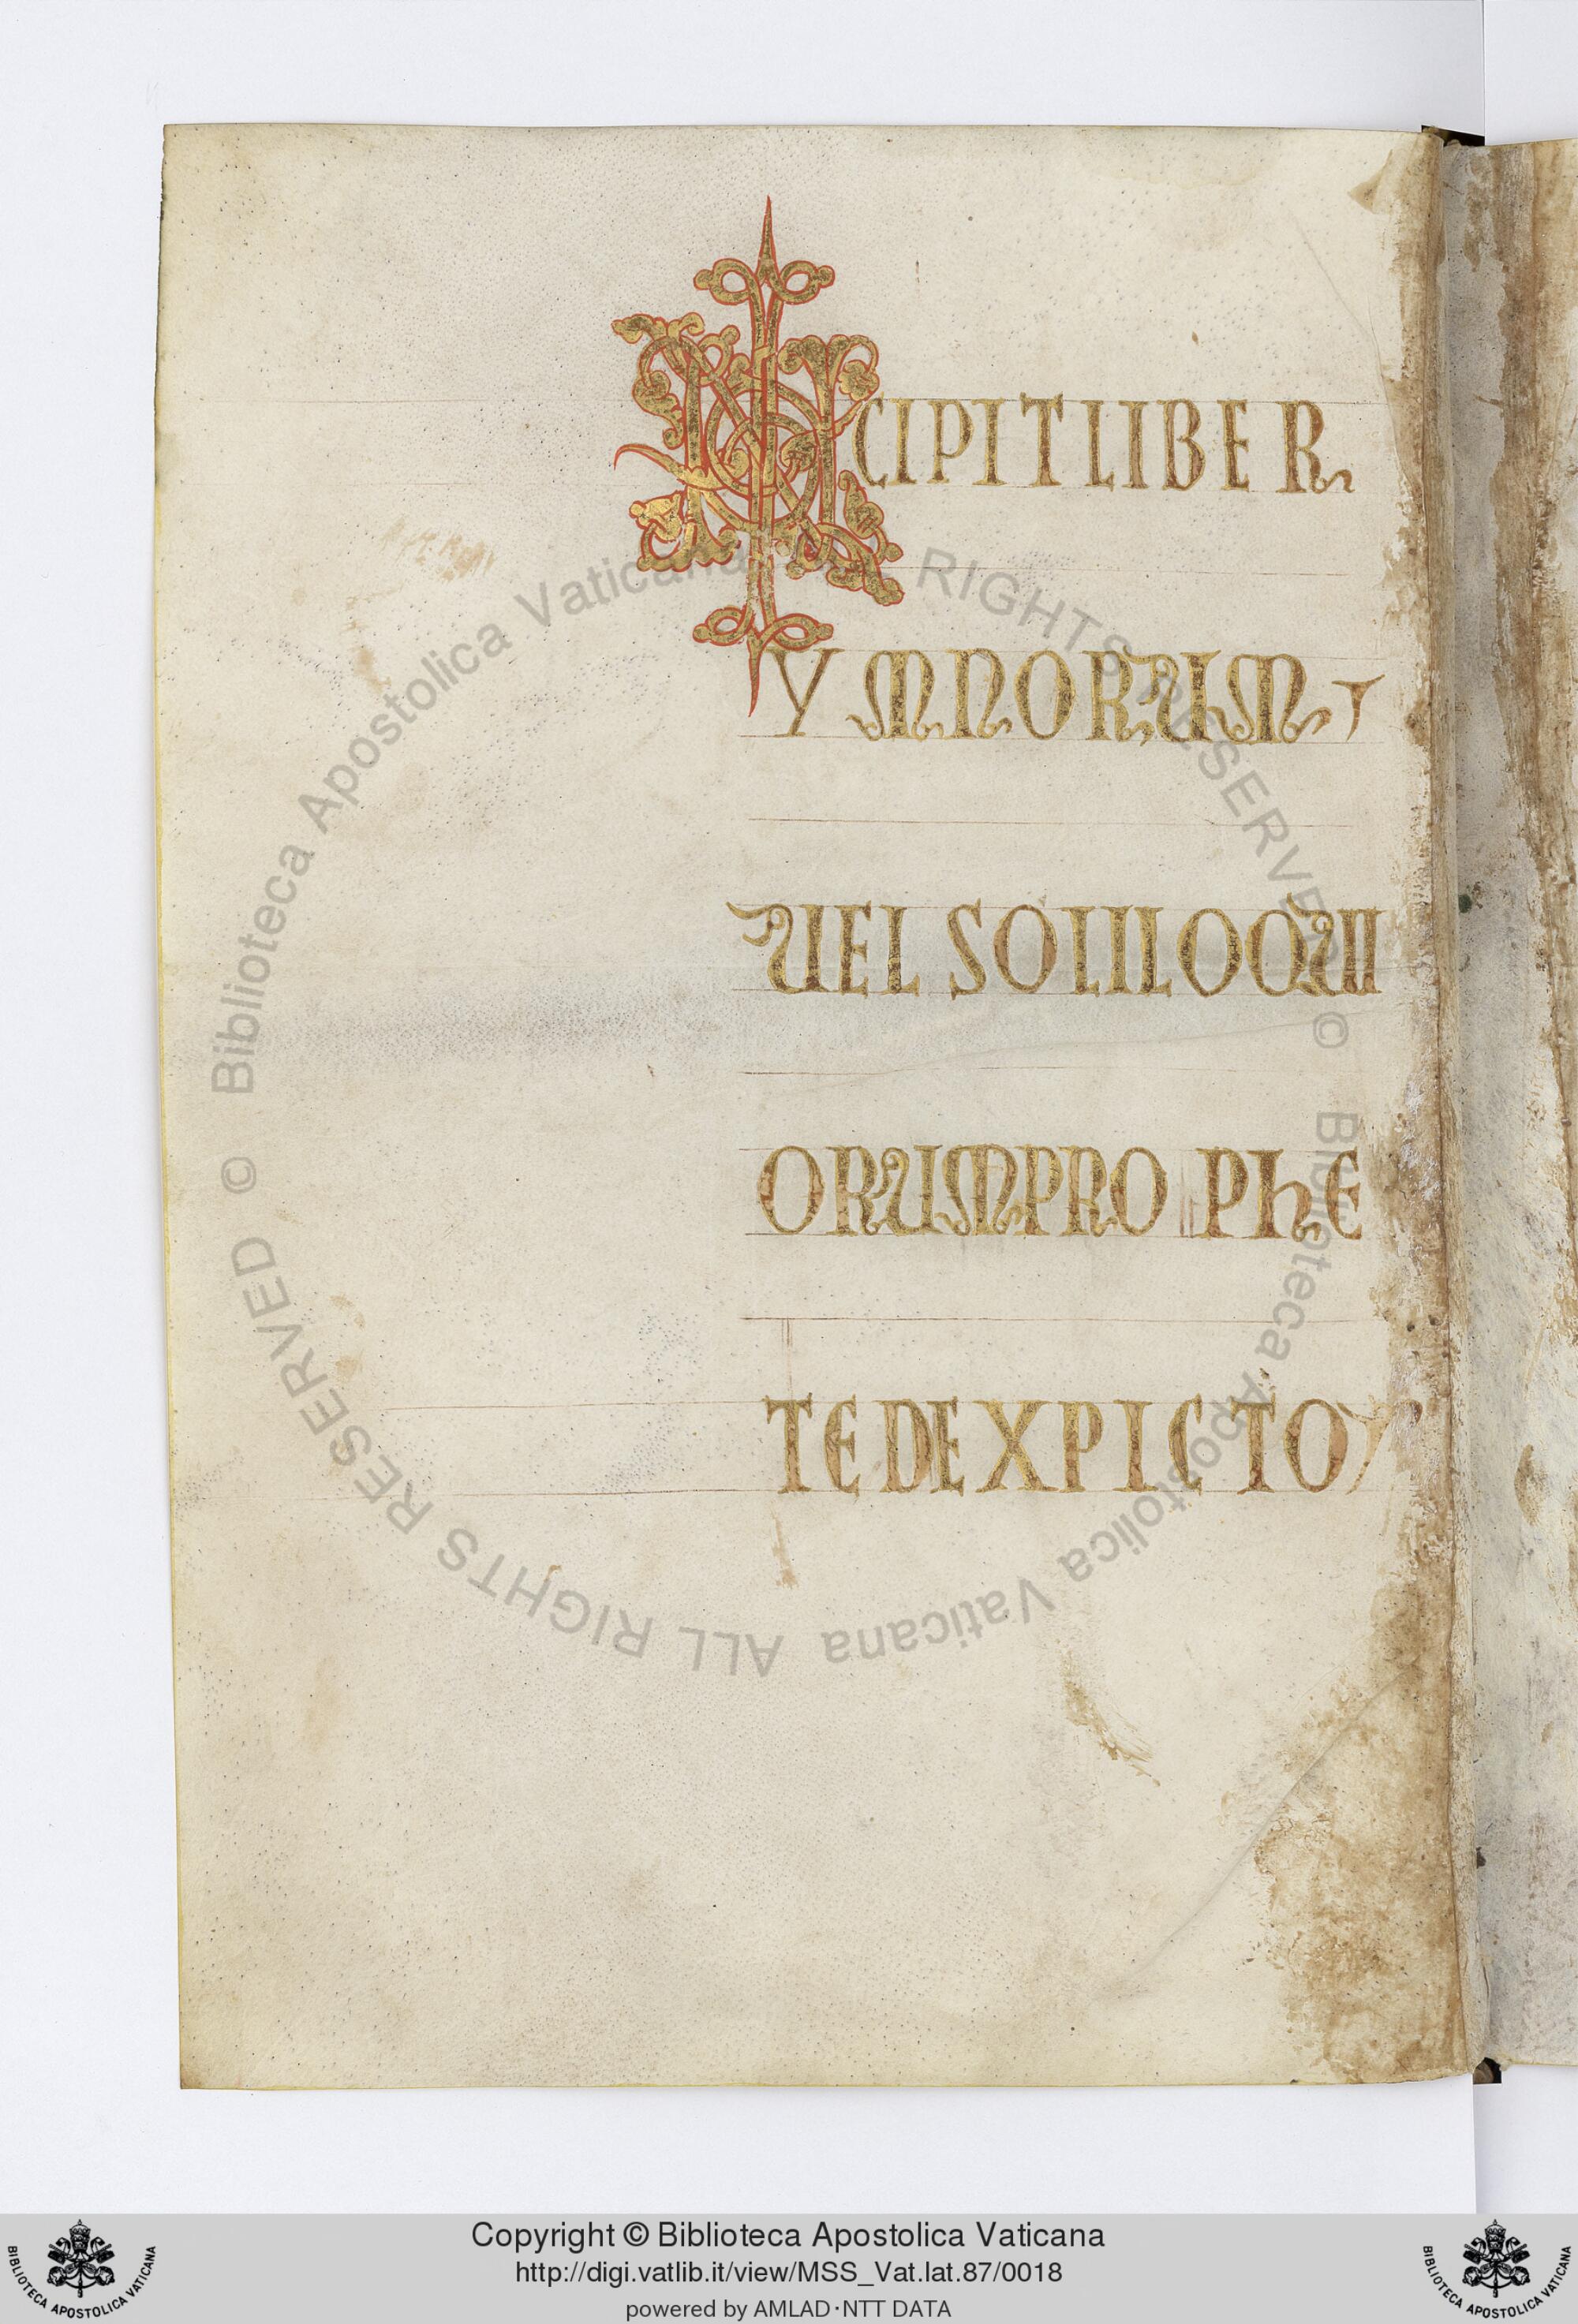 INCIPIT LIBER
YMNORUM
UEL SOLILOQUII
ORUM PROPHE
TE DE XPICTO
© Biblioteca Apostolica Vaticana ALL RIGHTS RESERVED © Biblioteca Apostolica Vaticana ALL RIGHTS RESERVED
Copyright © Biblioteca Apostolica Vaticana
http://digi.vatlib.it/view/MSS_Vat.lat.87/0018
powered by AMLAD·NTT DATA
BIBLIOTECA APOSTOLICA VATICANA
BIBLIOTECA APOSTOLICA VATICANA